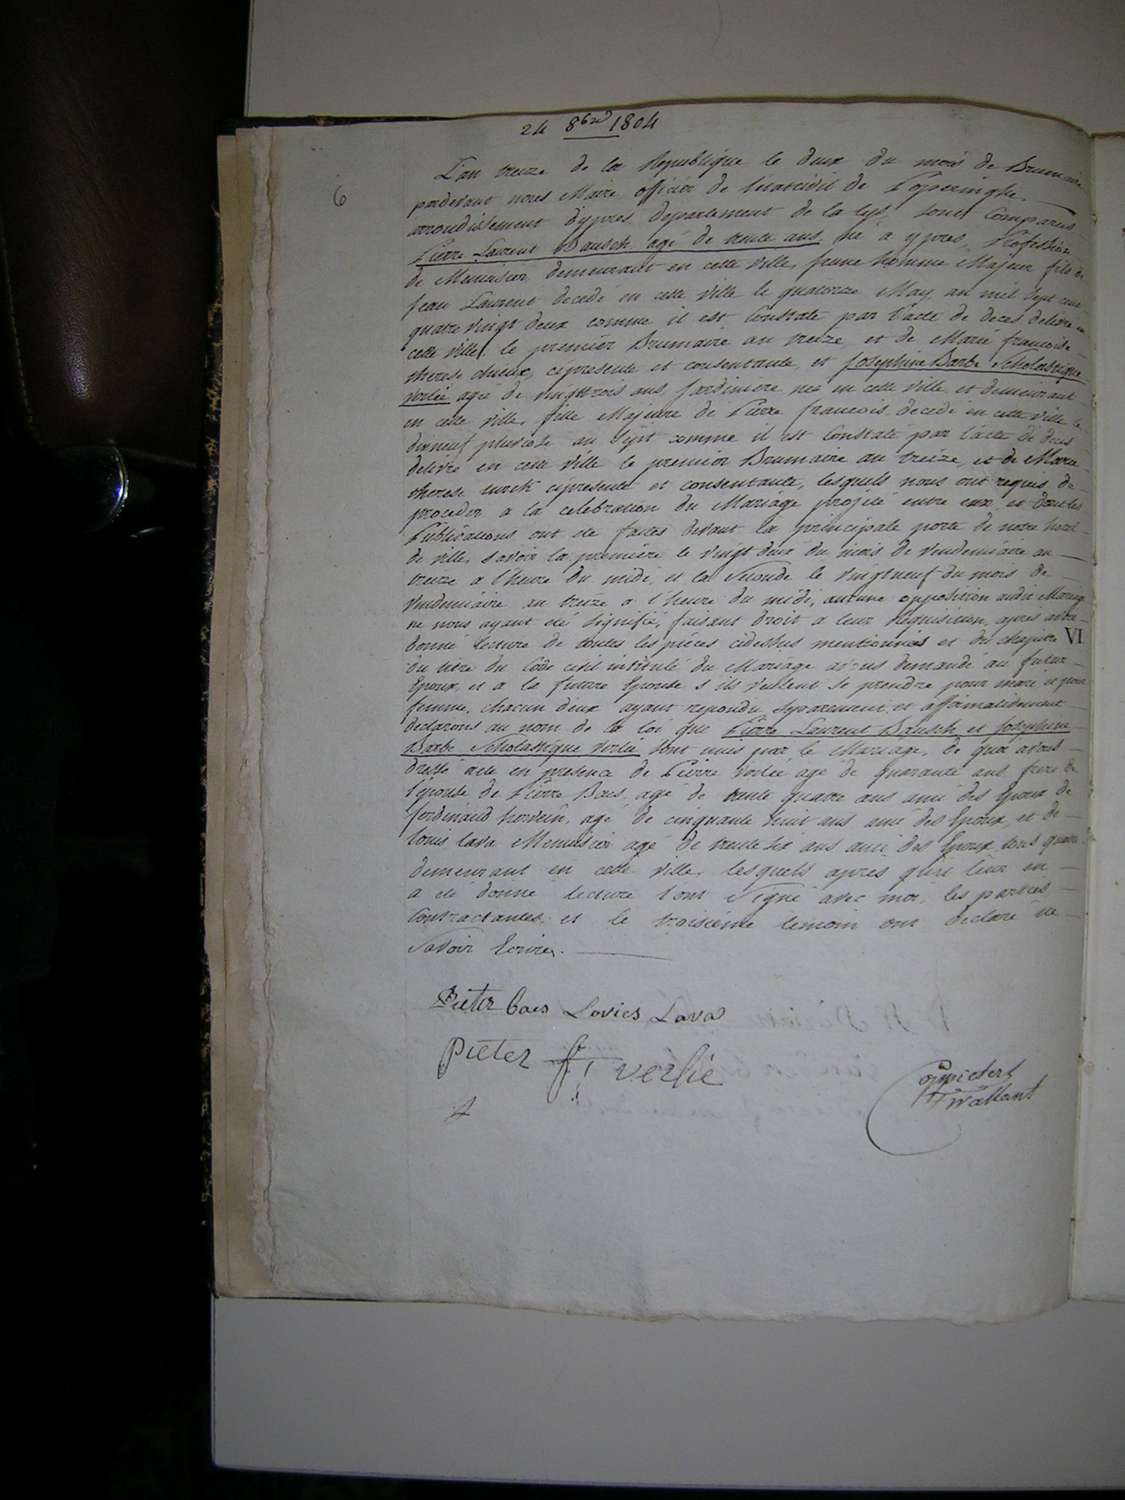 24 8bre 1804
6
L'an treize de la Republique le deux du mois de Brumaire
pardevant nous Maire officier de l'etat civil de Poperinghe
arrondissement d'ypres departement de la Lys, sont Comparus
Pierre Laurent Bausch agé de trente ans né a ypres, Profession
de Menusier demeurant en cette ville, jeune homme Majeur fils de
Jean Laurent decedé en cette ville le quatorze May an mil sept cent
quatre vingt deux comme il est Constaté par l'acte de deces delivré en
cette ville le premier Brumaire an treize et de Marie francoise
therese cipresente et consentante, et Josephine Barbe Scholastique
Verlie agé de vingttrois ans Jardiniere née en cette ville et demeurant
en cette ville, fille Majeure de Pierre francois decedé en cette ville le
dixneuf pluviose an sept comme il est Constaté par l'acte de deces
delivré en cette ville le premier Brumaire an treize, et de Marie
therese cipresente et consentante, lesquels nous ont requis de
proceder a la celebration du Mariage projeté entre eux et dont les
Publications ont été faites devant la principale porte de notre hotel
de ville, savoir la premiere le vingt deux du mois de Vendemiaire an
treize a l'heure du midi, et la Seconde le vingtneuf du mois de
Vendemiaire an treize a l'heure du midi, aucune opposition audit Mariage
ne nous ayant été signifié, faisant droit a leur Requisition, après avoir
donné lecture de toutes les pièces cidessus mentionnées et du chapitre VI
du titre du Code civil intitulé du Mariage avons demandé au futur
Epoux, et a la future Epouse s'ils veulent se prendre pour mari et pour
femme, chacun deux ayant repondu Separement et affirmativement
declarons au nom de la loi que Pierre Laurent Bausch et Josephine
Barbe Scholastique Verlie sont unis par le Mariage, de quoi avons
dressé acte en presence de Pierre Verlie agé de quarante ans frere de
l'épouse de Pierre Baes, agé de trente quatre ans ami des Epoux de
ferdinand agé de cinquante huit ans ami des Epoux, et de
louis lava Menusier agé de trente six ans ami des Epoux, tous quatre
demeurant en cette ville, lesquels après qu'il leur en
a été donné lecture l'ont Signé avec moi, les parties
Contractantes et le troisième temoin ont declaré ne
Savoir Ecrire.
Pieter baes Lovies Lava
Pieter f verlie